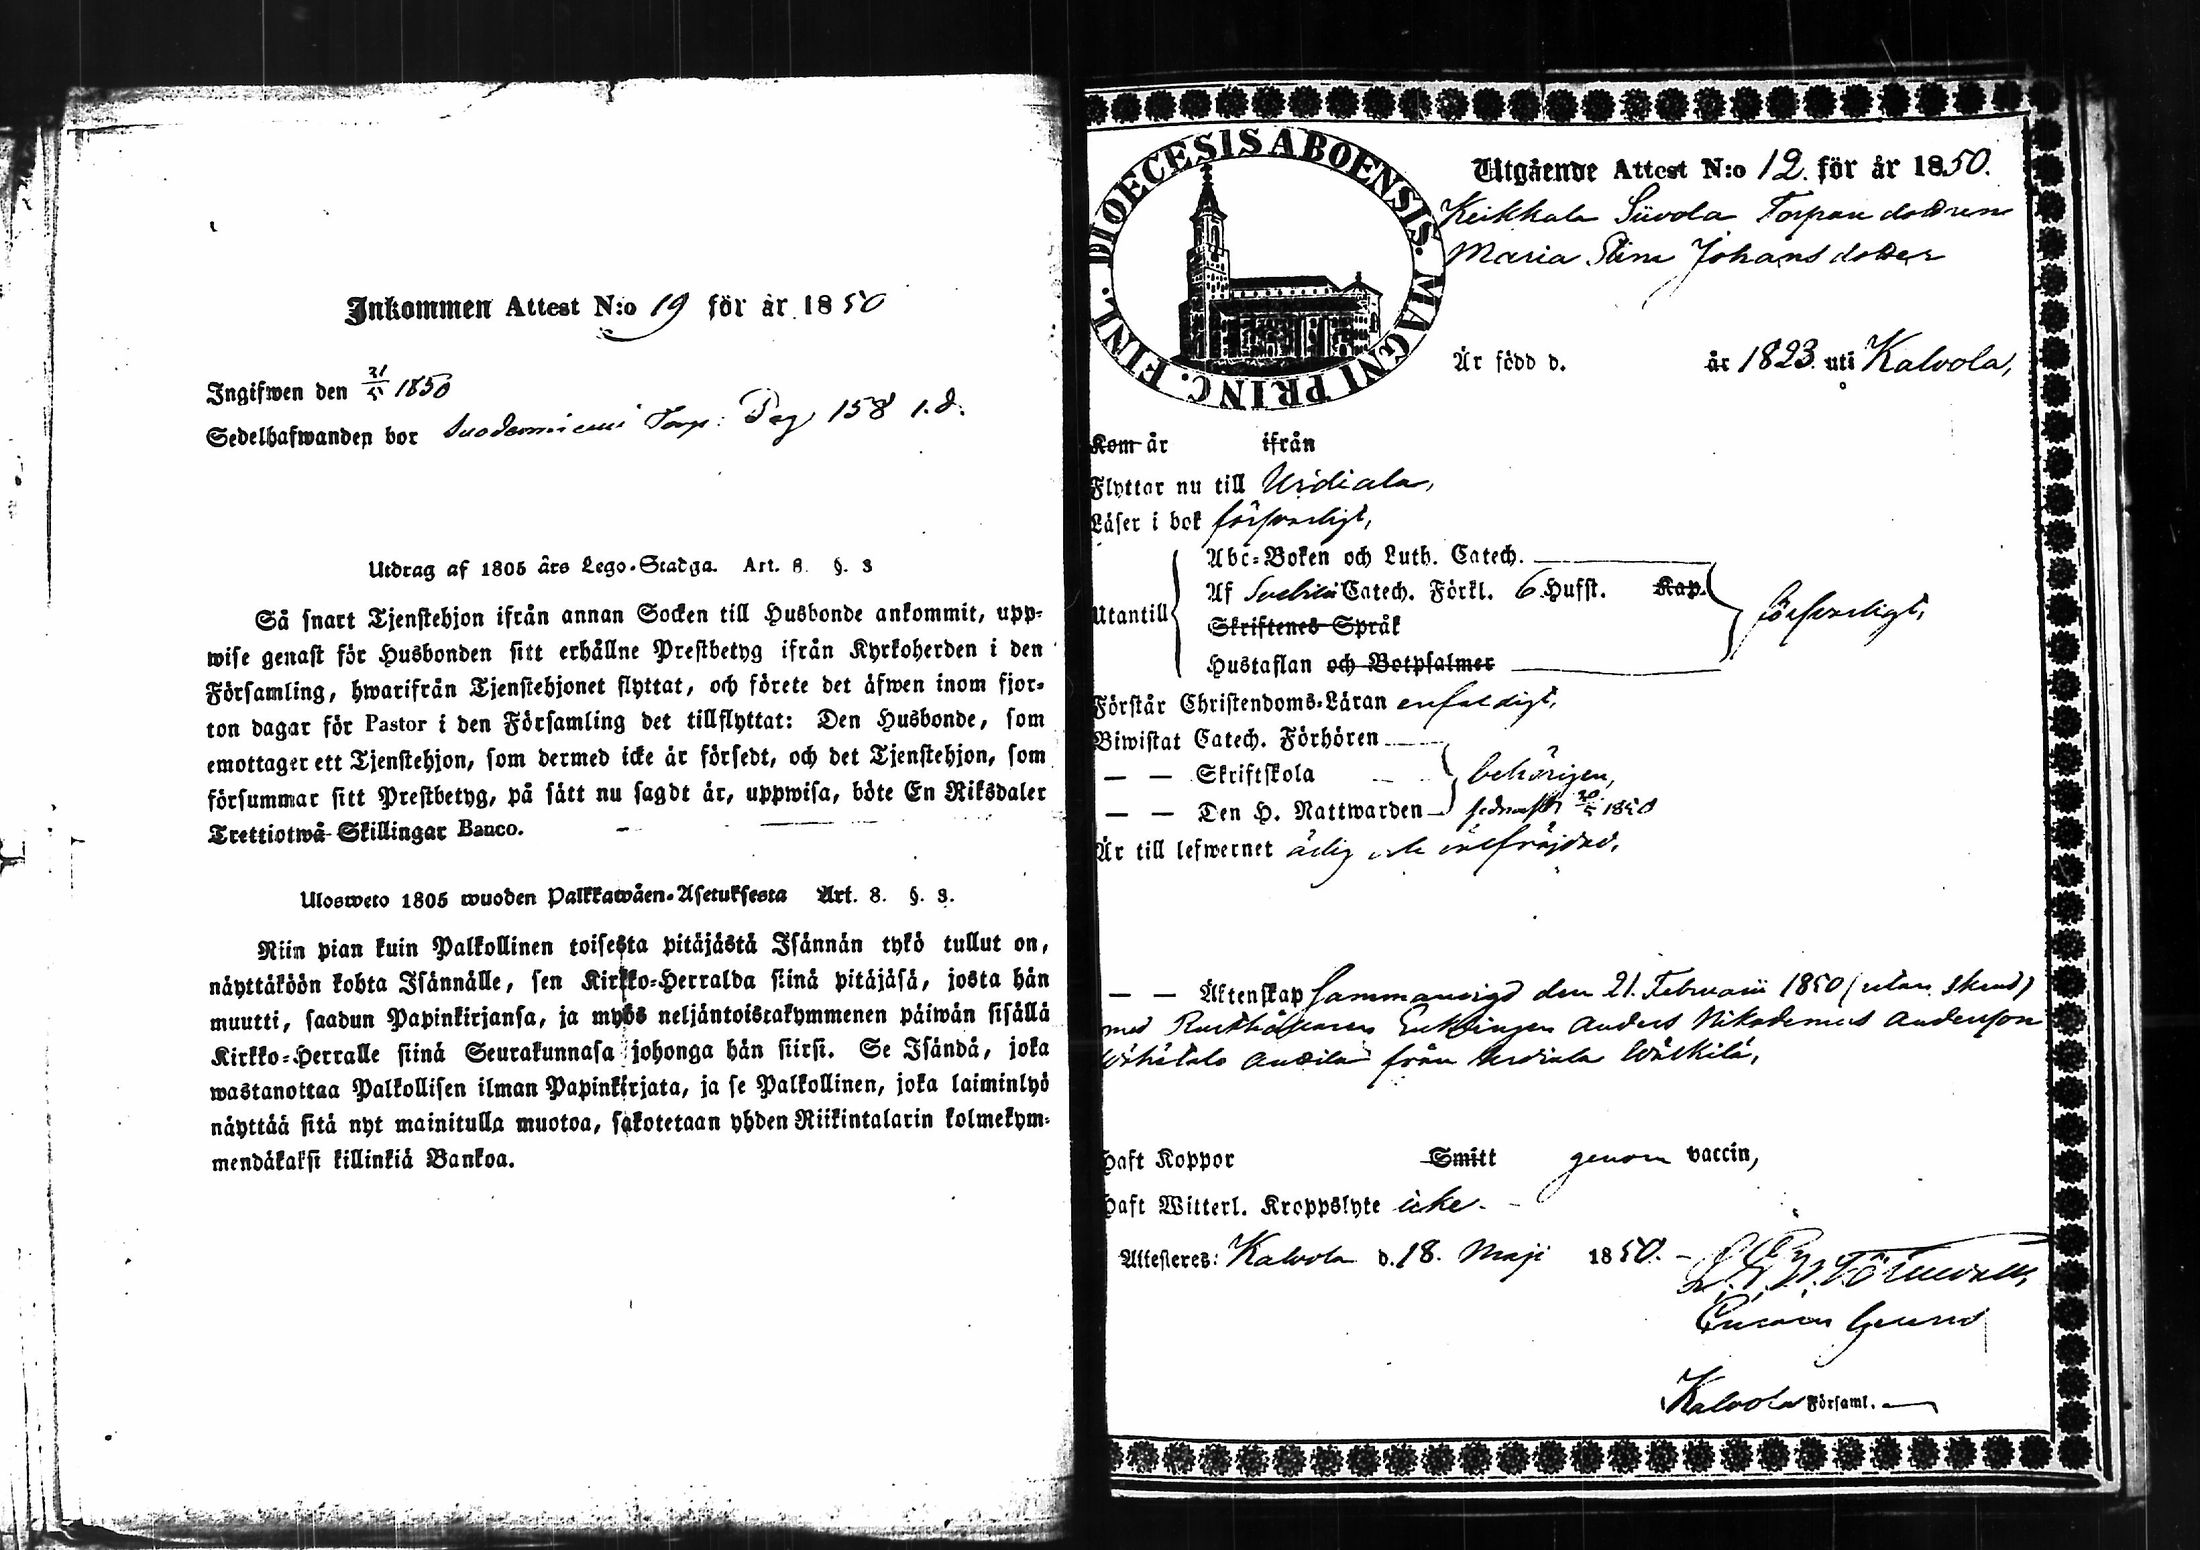 Inkommen Attest N:o 19 för år 1850
Ingifwen den 21/5 1850
Sedelhafwanden bor Torp: Pag 158 1.d.
Utdrag af 1805 års Lego-Stadga. Art. 8. §. 3
Så snart Tjenstehjon ifrån annan Socken till Husbonde ankommit, upp-
wise genast för Husbonden sitt erhållne Prestbetyg ifrån Kyrkoherden i den
Församling, hwarifrån Tjenstehjonet flyttat, och förete det äfwen inom fjor-
ton dagar för Pastor i den Församling det tillflyttat: Den Husbonde, som
emottager ett Tjenstehjon, som dermed icke är försedt, och det Tjenstehjon, som
försummar sitt Prestbetyg, på sätt nu sagdt är, uppwisa, böte En Riksdaler
Trettiotwå Skillingar Banco.
Ulosweto 1805 wuoden Palkkawäen-Asetuksesta Art. 8. §. 3.
Niin pian kuin Palkollinen toisesta pitäjästä Isännän tykö tullut on,
näyttäköön kohta Isännälle, sen Kirkko-Herralda siinä pitäjäsä, josta hän
muutti, saadun Papinkirjansa, ja myös neljäntoistakymmenen päiwän sisällä
Kirkko-Herralle siinä Seurakunnasa johonga hän siirsi. Se Isändä, joka
wastanottaa Palkollisen ilman Papinkirjata, ja se Palkollinen, joka laiminlyö
näyttää sitä nyt mainitulla muotoa, sakotetaan yhden Riikintalarin kolmekym-
mendäkaksi killinkiä Bankoa.
DIOECESIS ABOENSIS. MAGNI PRINC. FINL.
Utgående Attest N:o 12. för år 1850.
Keikkala Siivola Torpau dottren
Maria Stina Johansdotter
Är född d. år 1823. uti Kalvola,
Kom år ifrån
Flyttar nu till Urdiala,
Läser i bok försvarligt,
Abc-Boken och Luth. Catech.
Af Svebilii Catech. Förkl. 6 Hufst. Kap.
Utantill
försvarligt,
Skriftenes Språk
Hustaflan och Botpsalmer
Förstår Christendoms-Läran enfaldigt,
Biwistat Catech. Förhören
— — Skriftskola behörigen,
— — Den H. Nattwarden sednast 1850
Är till lefwernet ärlig och välfräjdad,
— — Äktenskap Sammanvigd den 21. Februarii 1850
med Enklingen Anders Nikodemus Andersson
från Urdiala Wälkilä,
Haft Koppor Smitt genom vaccin,
Haft Witterl. Kroppslyte icke.
Attesteres: Kalvola d. 18. Maji 1850.
Kalvola Församl.